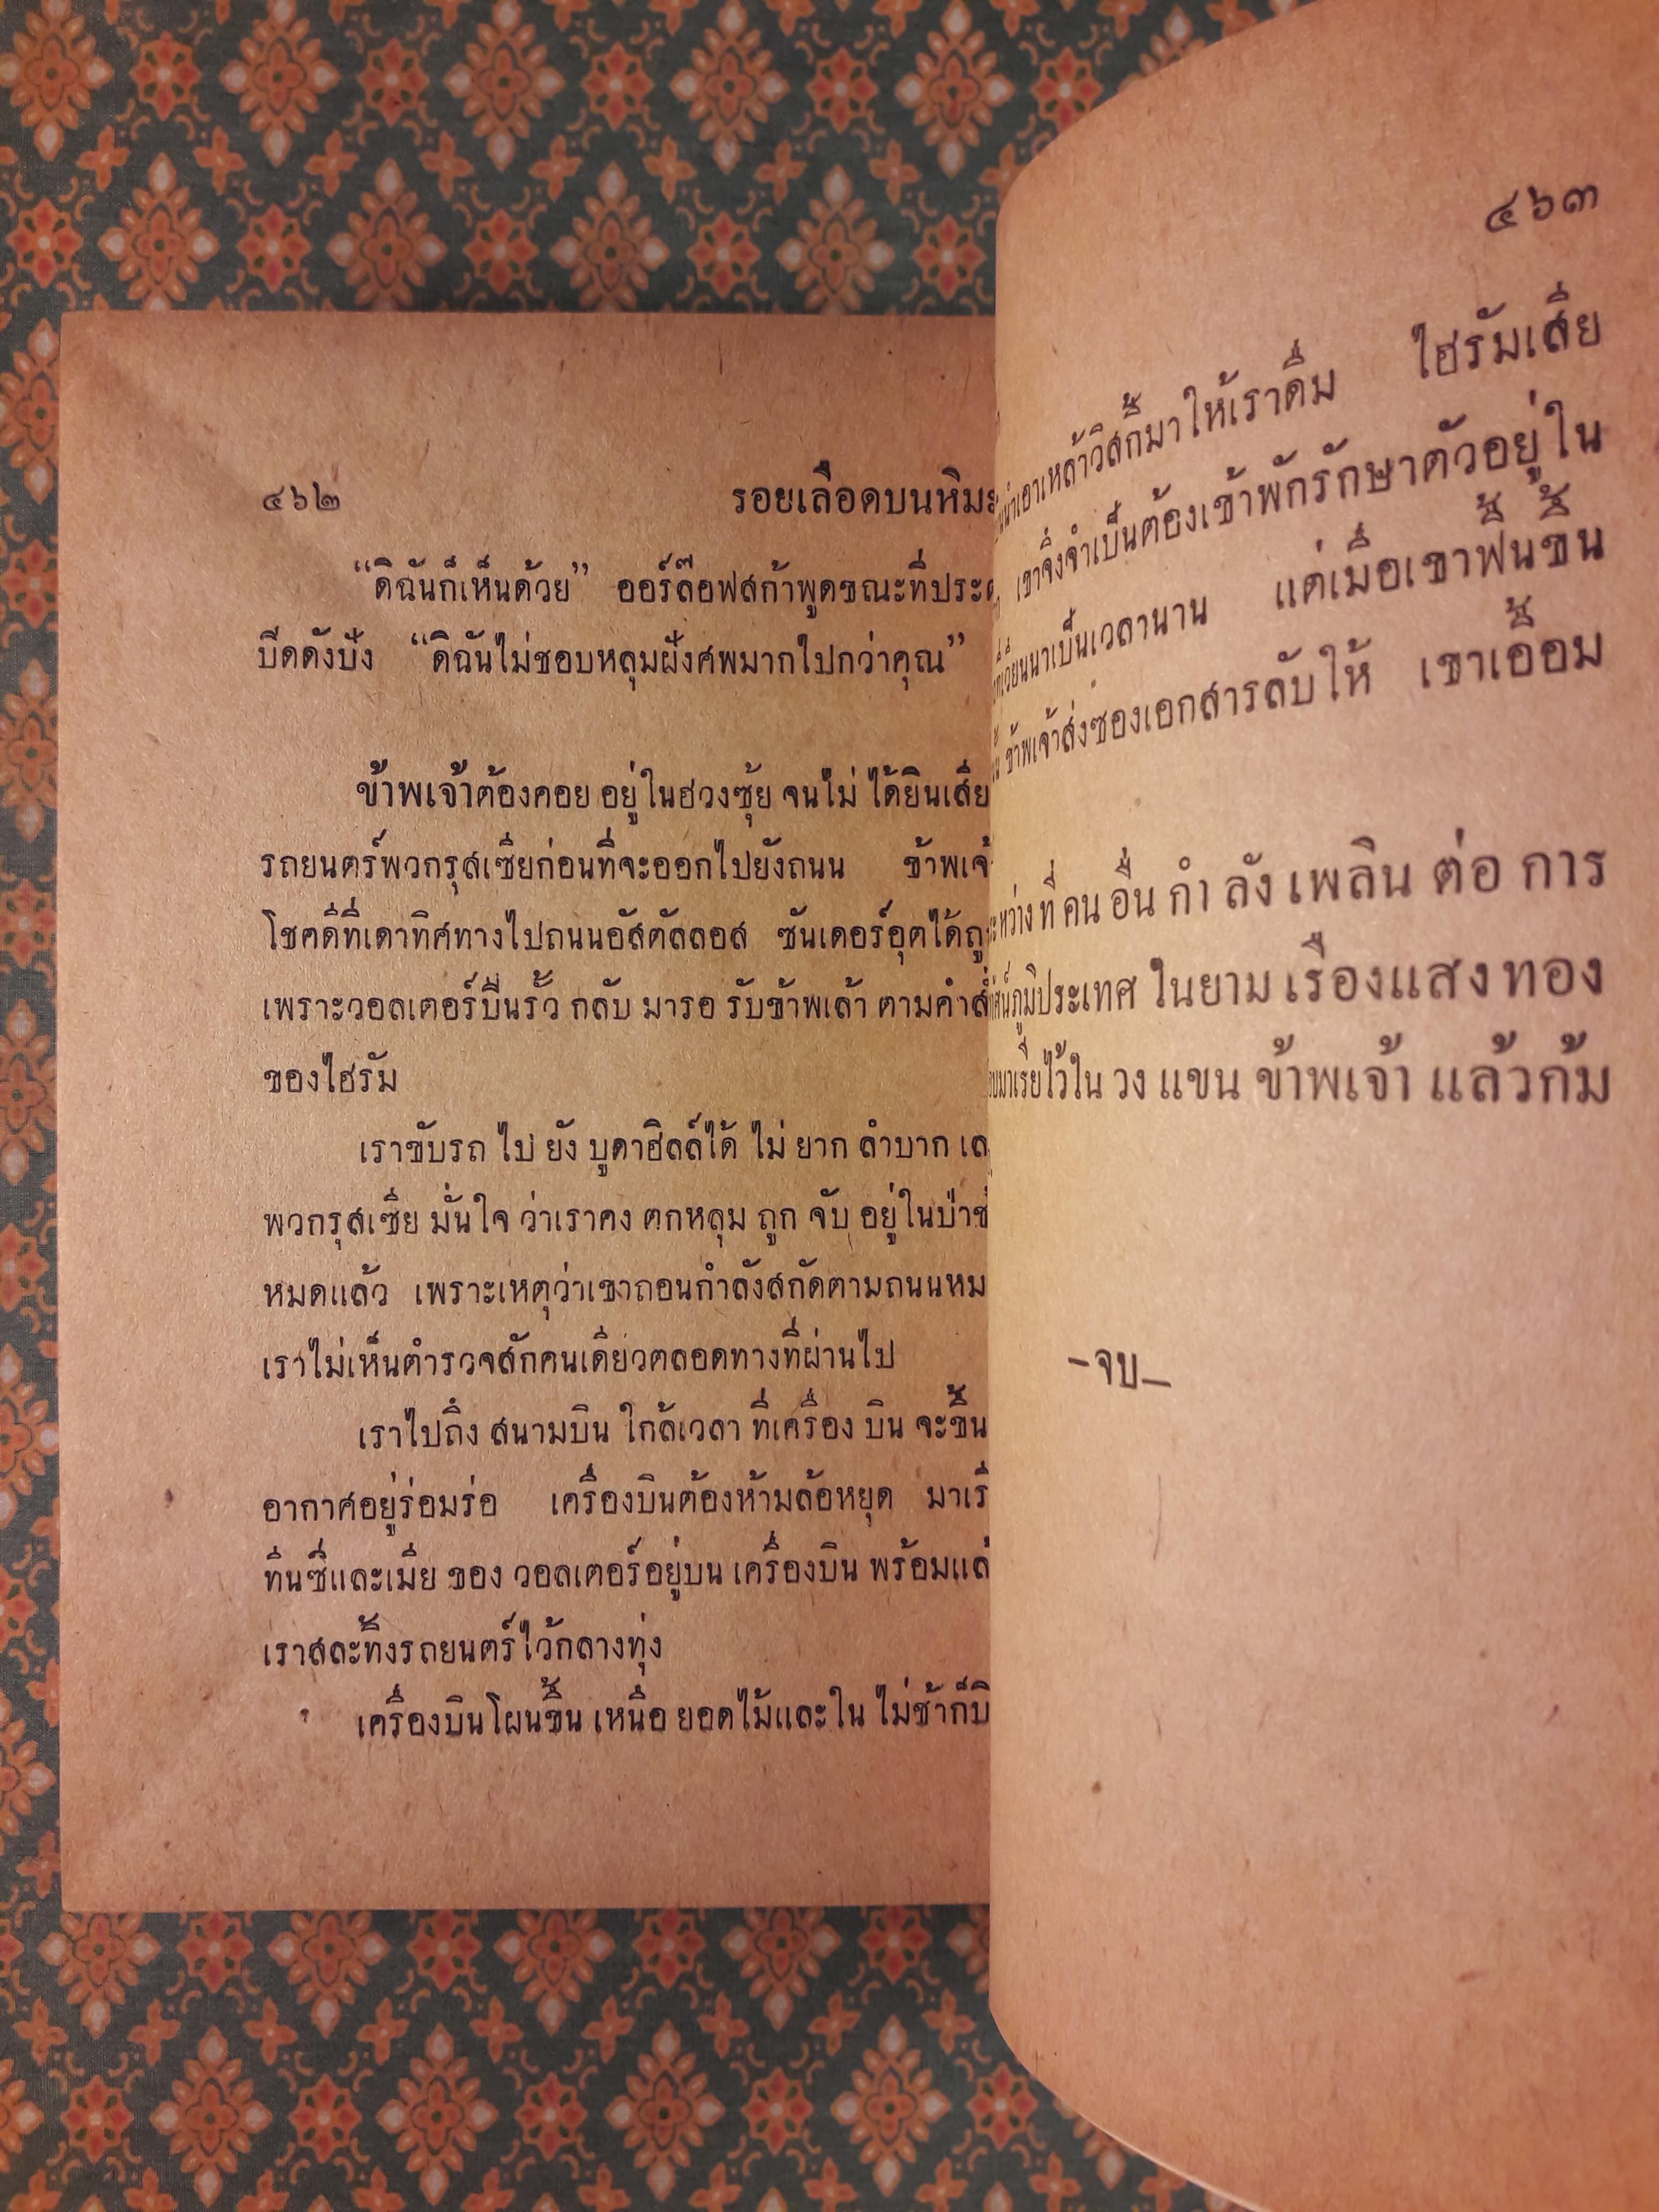 ๔๖๒
รอยเลือดบนหิมะ
“ดิฉันก็เห็นด้วย” ออร์ล๊อฟสก้าพูดขณะที่ประต
บีดดังบัง “ดิฉันไม่ชอบหลุมฝังศพมากไปกว่าคุณ”
ข้าพเจ้าต้องคอย อยู่ในฮวงซุ้ย จนไม่ ได้ยินเสีย
รถยนตร์พวกรุสเซียก่อนที่จะออกไปยังถนน ข้าพเจ้
โชคดีที่เดาทิศทางไปถนนอัสตัลลอส ซันเดอร์อุตได้ถู
เพราะวอลเตอร์บีนรั้ว กลับ มารอ รับข้าพเล้า ตามคำสั่
ของไฮรัม
เราขับรถ ไป ยัง บูดาฮิลล์ได้ ไม่ ยาก ลำบาก เล
พวกรุสเซีย มั่นใจ ว่าเราคง ตกหลุม ถูก จับ อยู่ในป่าช
หมดแล้ว เพราะเหตุว่าเขาถอนกำลังสกัดตามถนนหม
เราไม่เห็นตำรวจสักคนเดียวตลอดทางที่ผ่านไป
เราไปถึง สนามบิน ใกล้เวลา ที่เครื่อง บิน จะขึ้น
อากาศอยู่ร่อมร่อ เครื่องบินต้องห้ามล้อหยุด มาเรี
ทีนซี่และเมีย ของ วอลเตอร์อยู่บน เครื่องบิน พร้อมแล้
เราสละทิ้งรถยนตร์ไว้กลางทุ่ง
เครื่องบินโผนขึ้น เหนือ ยอดไม้และใน ไม่ช้าก็บิ
๔๖๓
นำเอาเหล้าวิสกี้มาให้เราดื่ม ไฮรัมเสีย
เขาจึงจำเป็นต้องเข้าพักรักษาตัวอยู่ใน
เวียนนาเป็นเวลานาน แต่เมื่อเขาฟื้นขึ้น
ข้าพเจ้าส่งซองเอกสารลับให้ เขาเอื้อม
ะหว่าง ที่ คน อื่น กำ ลัง เพลิน ต่อ การ
ทัศน์ภูมิประเทศ ในยาม เรืองแสง ทอง
มาเรียไว้ใน วง แขน ข้าพเจ้า แล้วก้ม
–จบ–